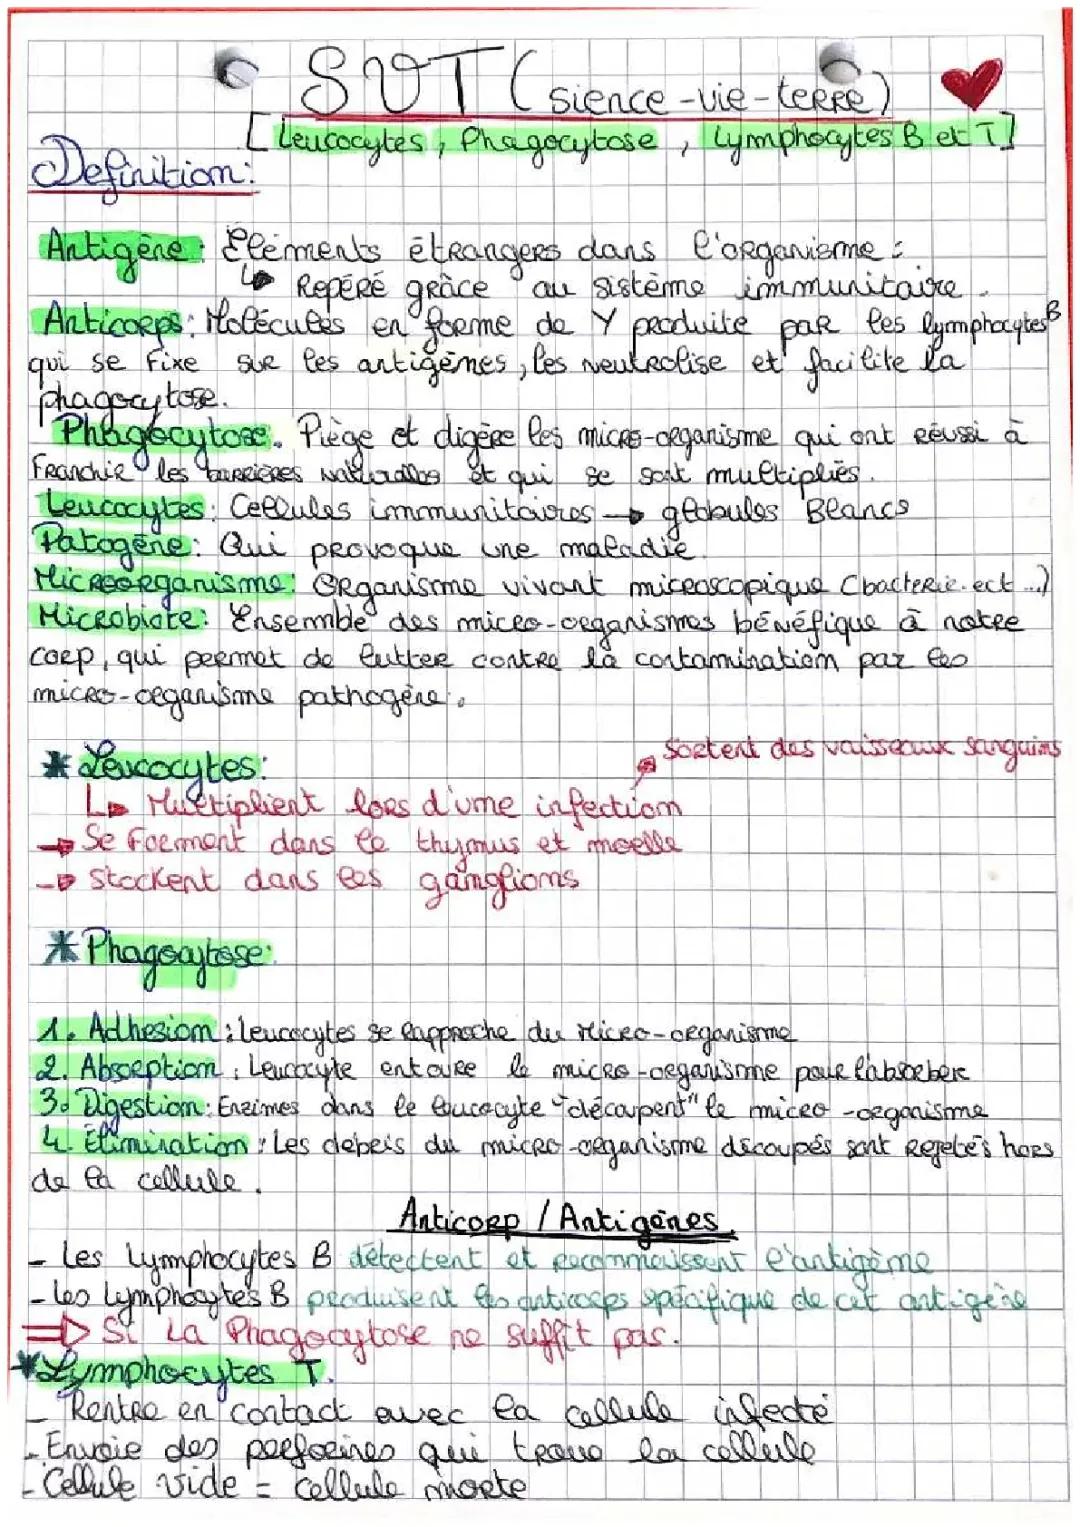 SVT (sience-vie-terre)
[Leucocytes, Phagocytose, Lymphocytes B et T]
Definition:
Antigène: Eléments étrangers dans l'organisme:
↳ Repéré grâce au sistème immunitaire.
Anticorps: Molécules en forme de Y produite par les lymphocytes B
qui se fixe sur les antigènes, les neutralise et facilite la
phagocytose.
Phagocytose. Piège et digère les micro-organisme qui ont réussi à
Franchir les barrières naturelles et qui se sont multipliés.
Leucocytes: Cellules immunitaires → globules Blancs
Patogène: Qui provoque une maladie.
Microorganisme: Organisme vivant microscopique (bacterie. ect...)
Microbiote: Ensemble des micro-organismes bénéfique à notre
corp, qui permet de lutter contre la contamination par les
micro-organisme pathogène.
* Leucocytes:
→ Sortent des vaisseaux sanguins
↳ Multiplient lors d'une infection
→ Se forment dans le thymus et moelle
→ Stockent dans les ganglions
* Phagocytose:
1. Adhesion: Leucocytes se rapproche du micro-organisme
2. Absorption: Leucocyte entoure le micro-organisme pour l'absorber
3. Digestion: Enzimes dans le leucocyte "découpent" le micro-organisme
4. Élimination: Les debris du micro-organisme découpés sont rejetés hors
de la cellule.
Anticorp / Antigènes.
- Les lymphocytes B détectent et reconnaissent l'antigène
- Les lymphocytes B produisent les anticorps spécifique de cet antigène
⇒ Si La Phagocytose ne suffit pas.
* Lymphocytes T.
- Rentre en contact avec la cellule infecté
- Envoie des perforines qui troue la cellule
- Cellule vide = cellule morte